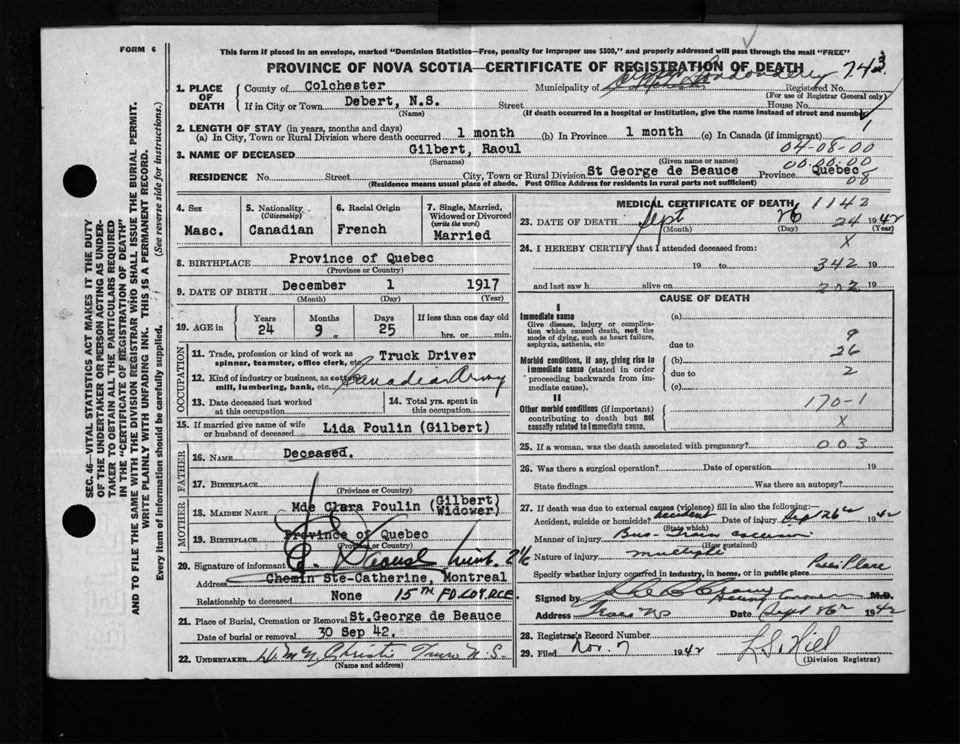 FORM 6
This form if placed in an envelope, marked "Dominion Statistics—Free, penalty for improper use $300," and properly addressed will pass through the mail "FREE"
PROVINCE OF NOVA SCOTIA—CERTIFICATE OF REGISTRATION OF DEATH
743
1. PLACE OF DEATH
County of Colchester
Municipality of Londonderry
Registered No.
(For use of Registrar General only)
If in City or Town Debert, N.S. Street House No.
(Name)
(If death occurred in a hospital or institution, give the name instead of street and number)
1
2. LENGTH OF STAY (in years, months and days)
(a) In City, Town or Rural Division where death occurred 1 month (b) In Province 1 month (c) In Canada (if immigrant)
3. NAME OF DECEASED Gilbert, Raoul 04-08-00
(Surname) (Given name or names) 00.00.00
RESIDENCE No. Street City, Town or Rural Division St George de Beauce Province Quebec
(Residence means usual place of abode. Post Office Address for residents in rural parts not sufficient) 08
4. Sex
Masc.
5. Nationality
(Citizenship)
Canadian
6. Racial Origin
French
7. Single, Married, Widowed or Divorced
(write the word)
Married
8. BIRTHPLACE Province of Quebec
(Province or Country)
9. DATE OF BIRTH December 1 1917
(Month) (Day) (Year)
10. AGE in
Years Months Days If less than one day old
24 9 25 hrs. or min.
OCCUPATION
11. Trade, profession or kind of work as spinner, teamster, office clerk, etc. Truck Driver
12. Kind of industry or business, as cotton mill, lumbering, bank, etc. Canadian Army
13. Date deceased last worked at this occupation
14. Total yrs. spent in this occupation
15. If married give name of wife or husband of deceased Lida Poulin (Gilbert)
FATHER
16. NAME Deceased.
17. BIRTHPLACE
(Province or Country)
MOTHER
18. MAIDEN NAME Mde Clara Poulin (Gilbert) Widower)
19. BIRTHPLACE Province of Quebec
(Province or Country)
20. Signature of informant
Address Chemin Ste-Catherine, Montreal
Relationship to deceased None 15TH FD COY RCE.
21. Place of Burial, Cremation or Removal St.George de Beauce
Date of burial or removal 30 Sep 42.
22. UNDERTAKER Christie Truro N.S.
(Name and address)
MEDICAL CERTIFICATE OF DEATH 1142
23. DATE OF DEATH Sept 26 24 1942
(Month) (Day) (Year)
24. I HEREBY CERTIFY that I attended deceased from: X
19 to 342 19
and last saw h alive on 202 19
CAUSE OF DEATH
I
Immediate cause (a)
Give disease, injury or complication which caused death, not the mode of dying, such as heart failure, asphyxia, asthenia, etc.
due to 9
Morbid conditions, if any, giving rise to immediate cause (stated in order proceeding backwards from immediate cause).
(b) 26
due to 2
(c)
II
Other morbid conditions (if important) contributing to death but not causally related to immediate cause.
170-1
X
25. If a woman, was the death associated with pregnancy? 003
26. Was there a surgical operation? Date of operation 19
State findings Was there an autopsy?
27. If death was due to external causes (violence) fill in also the following:—
Accident, suicide or homicide? accident Date of injury Sept 26 1942
(State which)
Manner of injury Bus-Train collision
(How sustained)
Nature of injury multiple
Specify whether injury occurred in industry, in home, or in public place Place
Signed by Coroner M.D.
Address Truro NS Date Sept 1942
28. Registrar's Record Number
29. Filed Nov. 7 1942 L.S. Hill
(Division Registrar)
SEC. 46—VITAL STATISTICS ACT MAKES IT THE DUTY
OF THE UNDERTAKER OR PERSON ACTING AS UNDERTAKER TO OBTAIN ALL THE PARTICULARS REQUIRED
IN THE "CERTIFICATE OF REGISTRATION OF DEATH"
AND TO FILE THE SAME WITH THE DIVISION REGISTRAR WHO SHALL ISSUE THE BURIAL PERMIT.
WRITE PLAINLY WITH UNFADING INK. THIS IS A PERMANENT RECORD.
Every item of information should be carefully supplied. (See reverse side for instructions.)